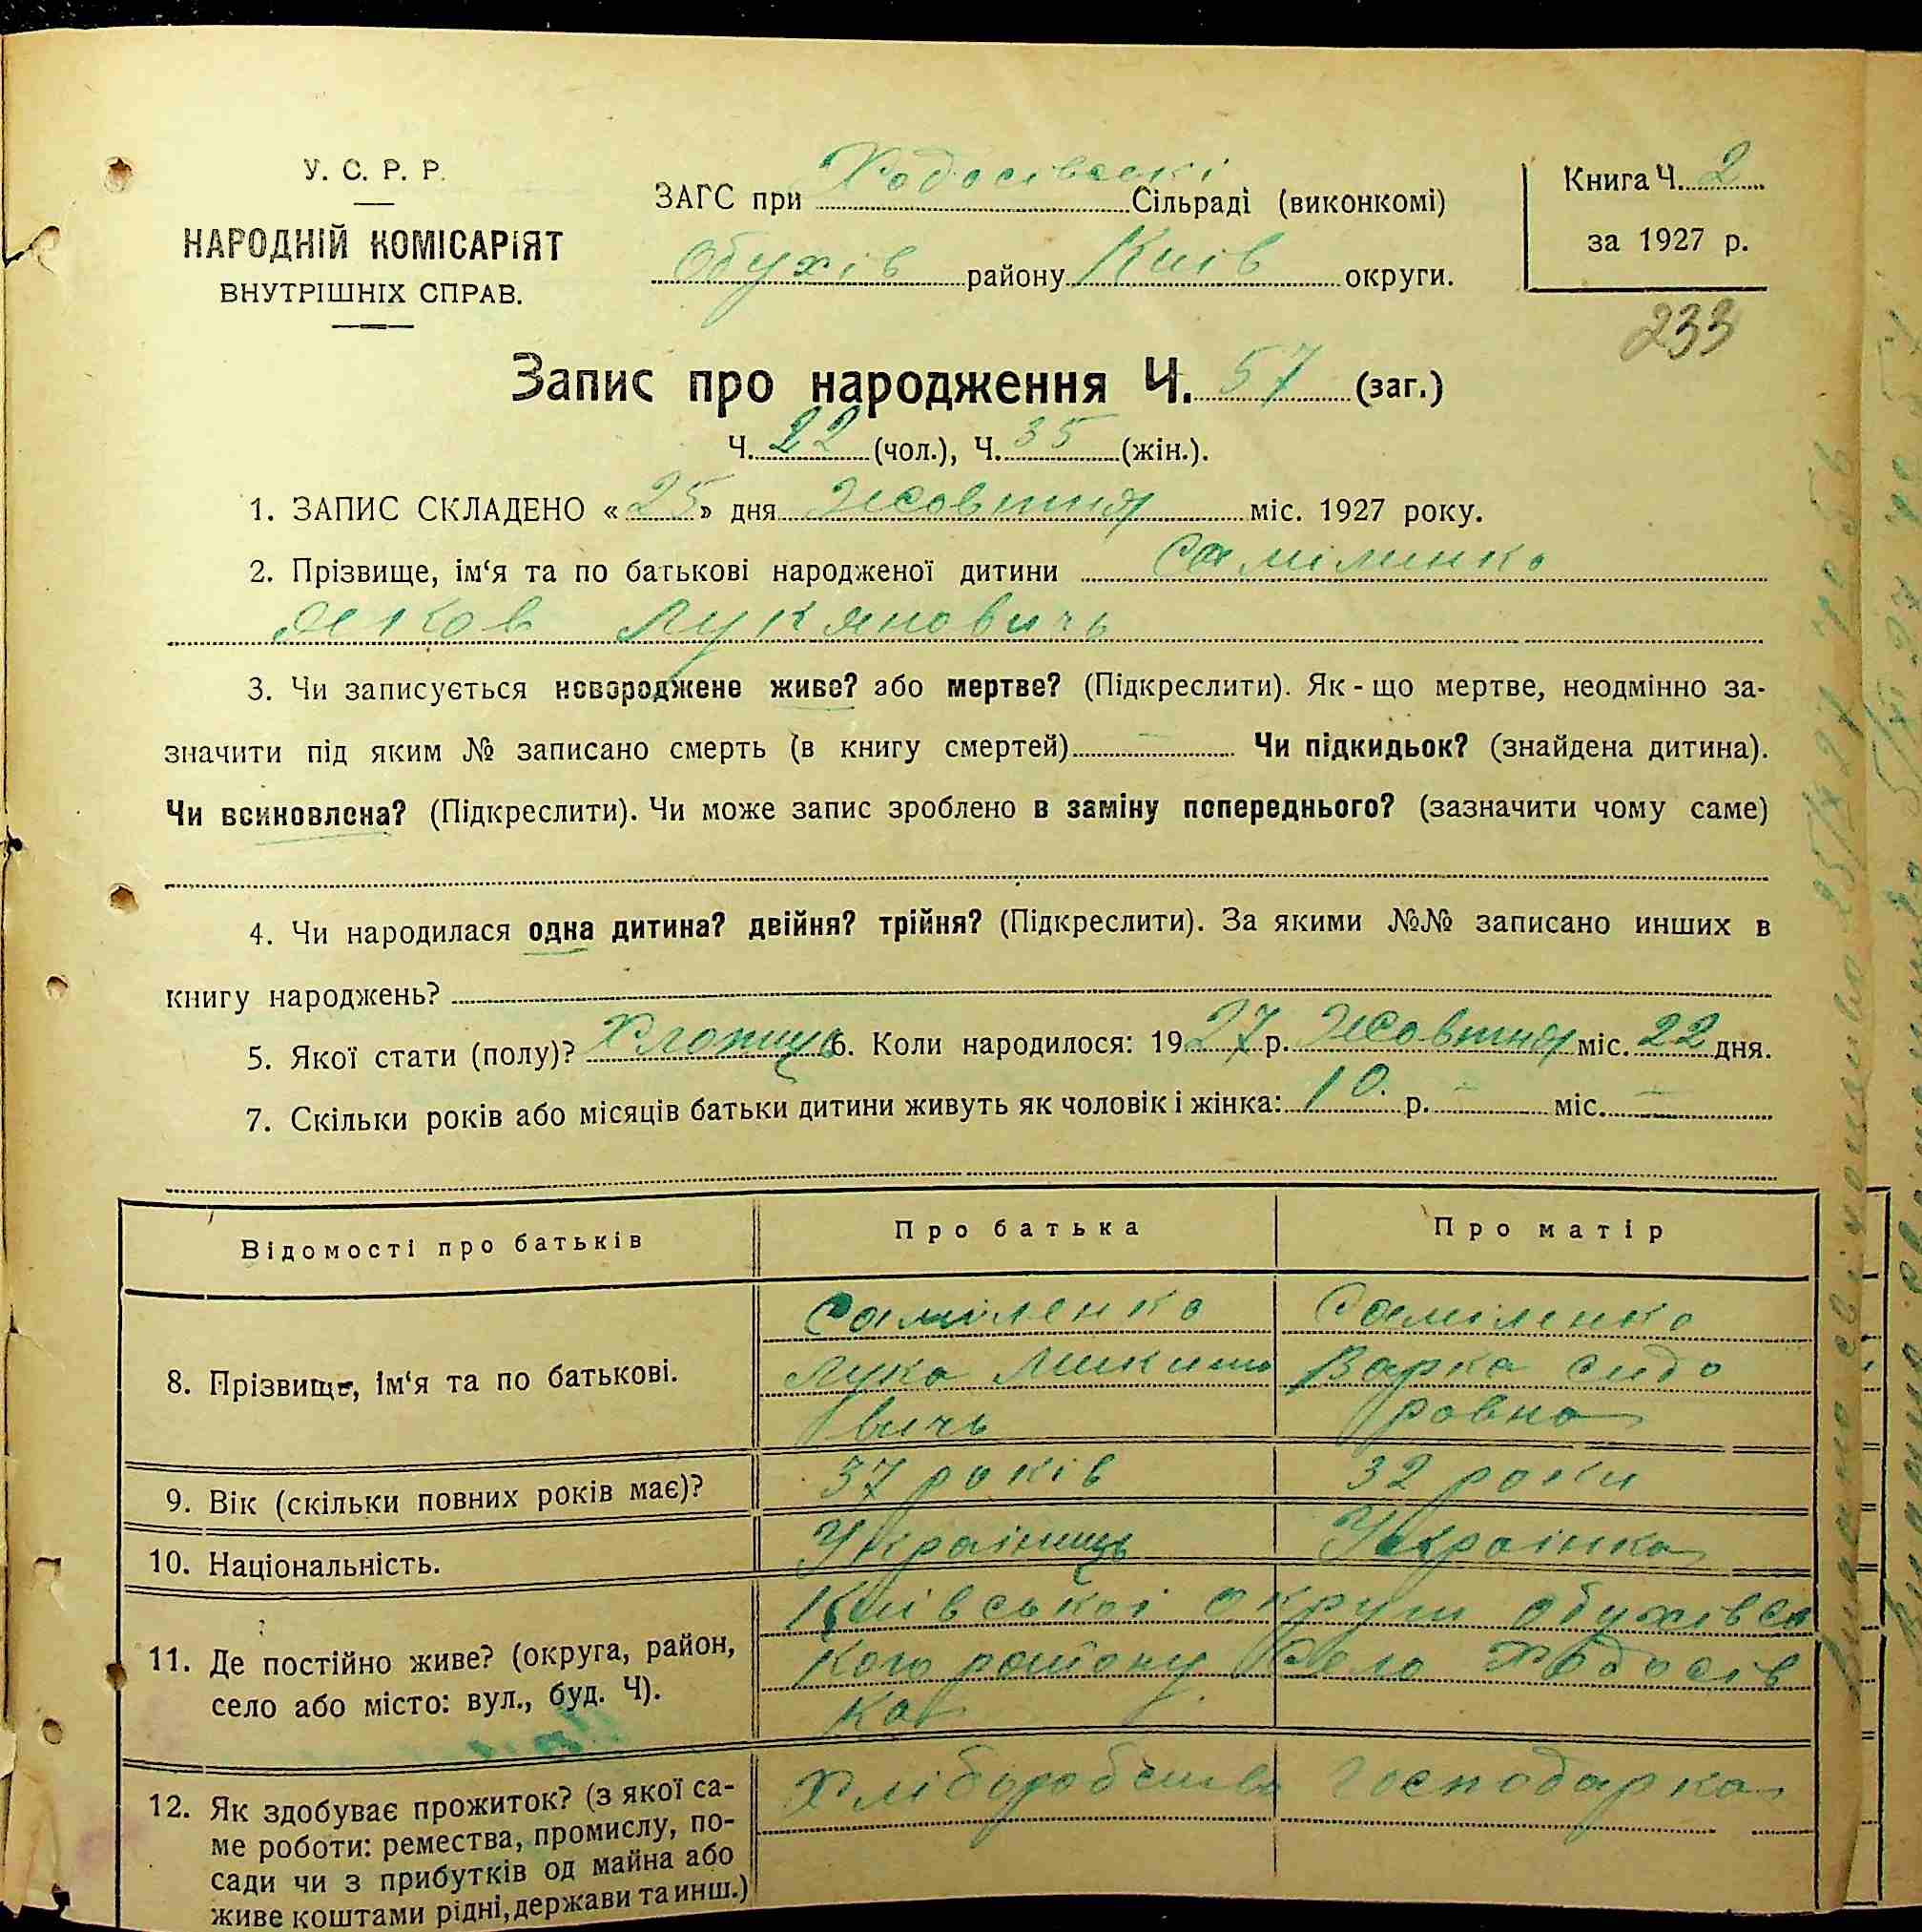 У. С. Р. Р.
НАРОДНІЙ КОМІСАРІЯТ
ВНУТРІШНІХ СПРАВ.
ЗАГС при Ходосівскі Сільраді (виконкомі)
Обухів району Київ округи.
Книга Ч. 2
за 1927 р.
233
Запис про народження Ч. 57 (заг.)
Ч. 22 (чол.), Ч. 35 (жін.).
1. ЗАПИС СКЛАДЕНО « 25 » дня Жовтня міс. 1927 року.
2. Прізвище, ім‘я та по батькові народженої дитини Саміленко
Яков Лукяновичь
3. Чи записується новороджене живе? або мертве? (Підкреслити). Як-що мертве, неодмінно за-
значити під яким № записано смерть (в книгу смертей) — Чи підкидьок? (знайдена дитина).
Чи всиновлена? (Підкреслити). Чи може запис зроблено в заміну попереднього? (зазначити чому саме)
4. Чи народилася одна дитина? двійня? трійня? (Підкреслити). За якими №№ записано инших в
книгу народжень?
5. Якої стати (полу)? Хлопиць 6. Коли народилося: 1927 р. Жовтня міс. 22 дня.
7. Скільки років або місяців батьки дитини живуть як чоловік і жінка: 10 р. — міс. —
Відомості про батьків Про батька Про матір
8. Прізвище, ім‘я та по батькові.
Саміленко
Лука Микито
вичь
Саміленко
Варка Сидо
ровна
9. Вік (скільки повних років має)? 37 років 32 роки
10. Національність. Українець Українка
11. Де постійно живе? (округа, район,
село або місто: вул., буд. Ч).
Київської округи Обухівсь
кого району Село Ходосів
ка
12. Як здобуває прожиток? (з якої са-
ме роботи: ремества, промислу, по-
сади чи з прибутків од майна або
живе коштами рідні, держави та инш.)
Хліборобство Господарка